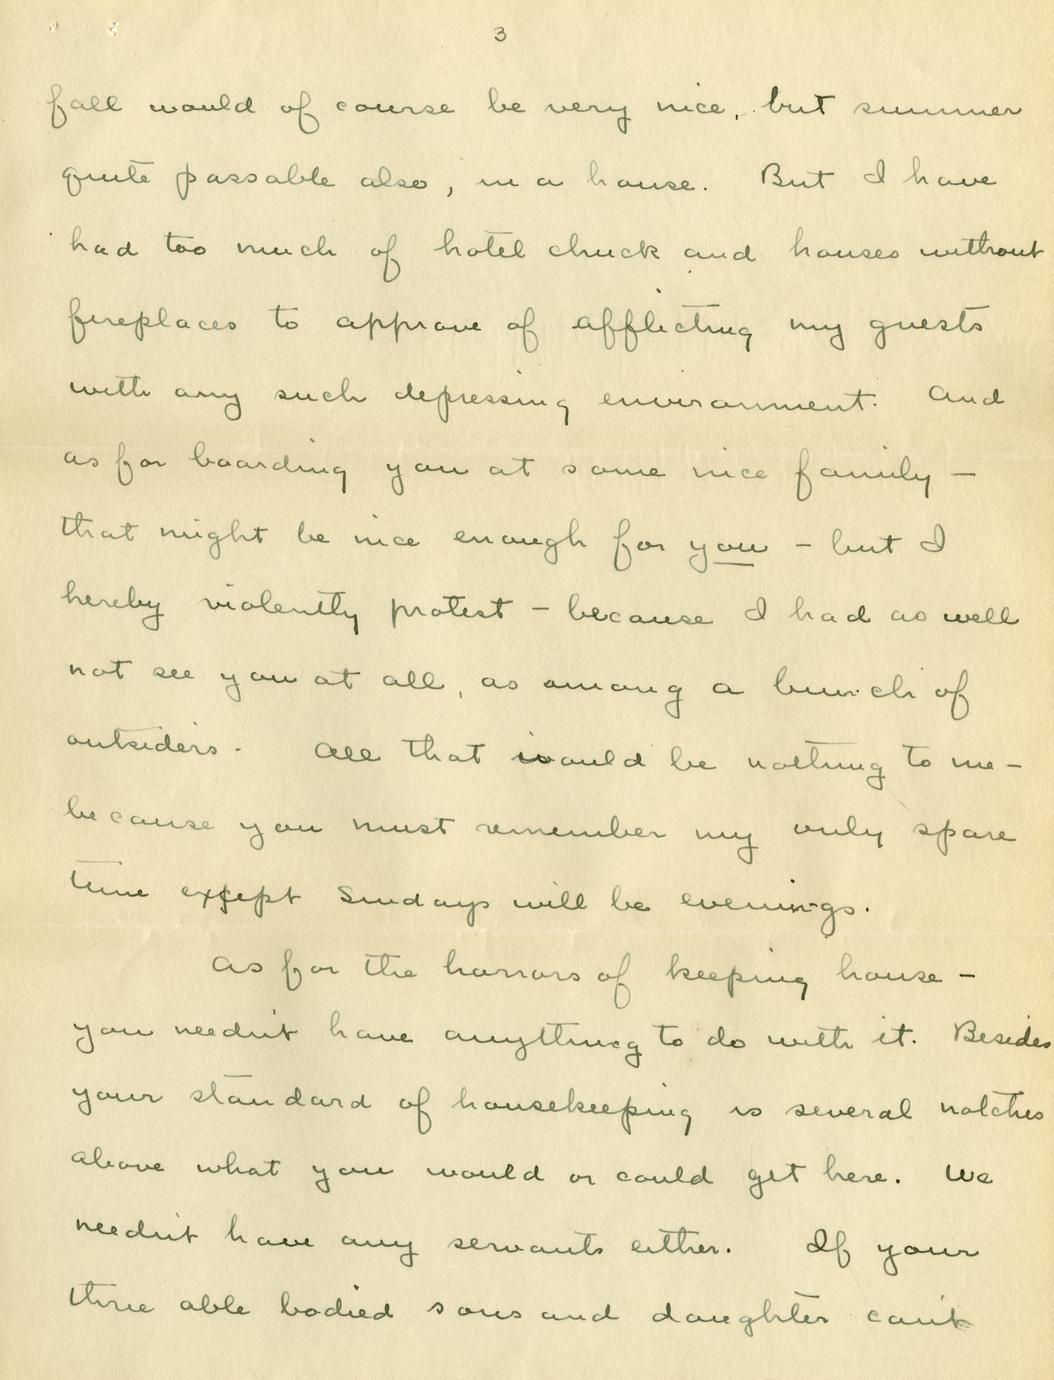 3
fall would of course be very nice, but summer
quite passable also, in a house. But I have
had too much of hotel chuck and houses without
fireplaces to approve of afflicting my guests
with any such depressing environment. And
as for boarding you at some nice family —
that might be nice enough for you — but I
hereby violently protest — because I had as well
not see you at all, as among a bunch of
outsiders. All that would be nothing to me —
because you must remember my only spare
time except Sundays will be evenings.
As for the horrors of keeping house —
you needn't have anything to do with it. Besides
your standard of housekeeping is several notches
above what you would or could get here. We
needn't have any servants either. If your
three able bodied sons and daughter can't